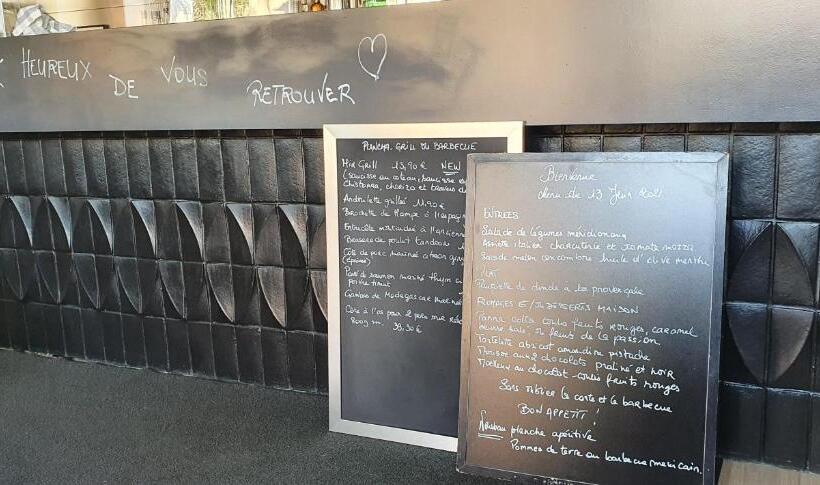 HEUREUX DE VOUS RETROUVER
PLANCHA. GRILL OU BARBECUE
Mix Grill 13,90 € NEW
(saucisse au couteau, saucisse de
chistorra, chorizo et travers de
Andouillette grillée 11,90 €
Brochette de
Entrecôte marinée à l'ancienne
Brochette de poulet tandoori
Côte de porc mariné
(épices)
Pavé de saumon mariné thym
Gambas de Madagascar marinées
Côte à l'os pour 2 pers
800g 38,90 €
Bienvenue
menu du 13 Juin 2021
ENTREES
Salade de légumes méridionaux
Assiette italien charcuterie et tomate mozza
Salade melon concombre huile d'olive menthe
PLAT
de dinde à la provençale
FROMAGES ET/OU DESSERTS MAISON
Panna cotta coulis fruits rouges, caramel
beurre salé, ou fruits de la passion
Tartelette abricot amandine pistache
Mousse aux 2 chocolats praliné et noir
Moelleux au chocolat coulis fruits rouges
Sans oublier la carte et le barbecue
BON APPETIT !
Nouveau planche apéritive
Pommes de terre au barbecue mexicain.